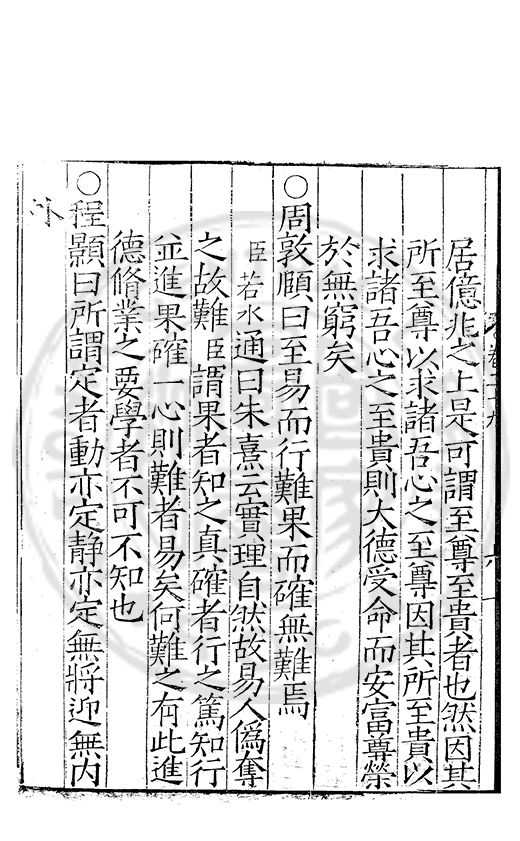 居億兆之上是可謂至尊至貴者也然因其
所至尊以求諸吾心之至尊因其所至貴以
求諸吾心之至貴則大德受命而安富尊榮
於無窮矣
○周敦頤曰至易而行難果而確無難焉
臣若水通曰朱熹云實理自然故易人偽奪
之故難臣謂果者知之真確者行之篤知行
並進果確一心則難者易矣何難之有此進
德脩業之要學者不可不知也
○程顥曰所謂定者動亦定靜亦定無將迎無内
外